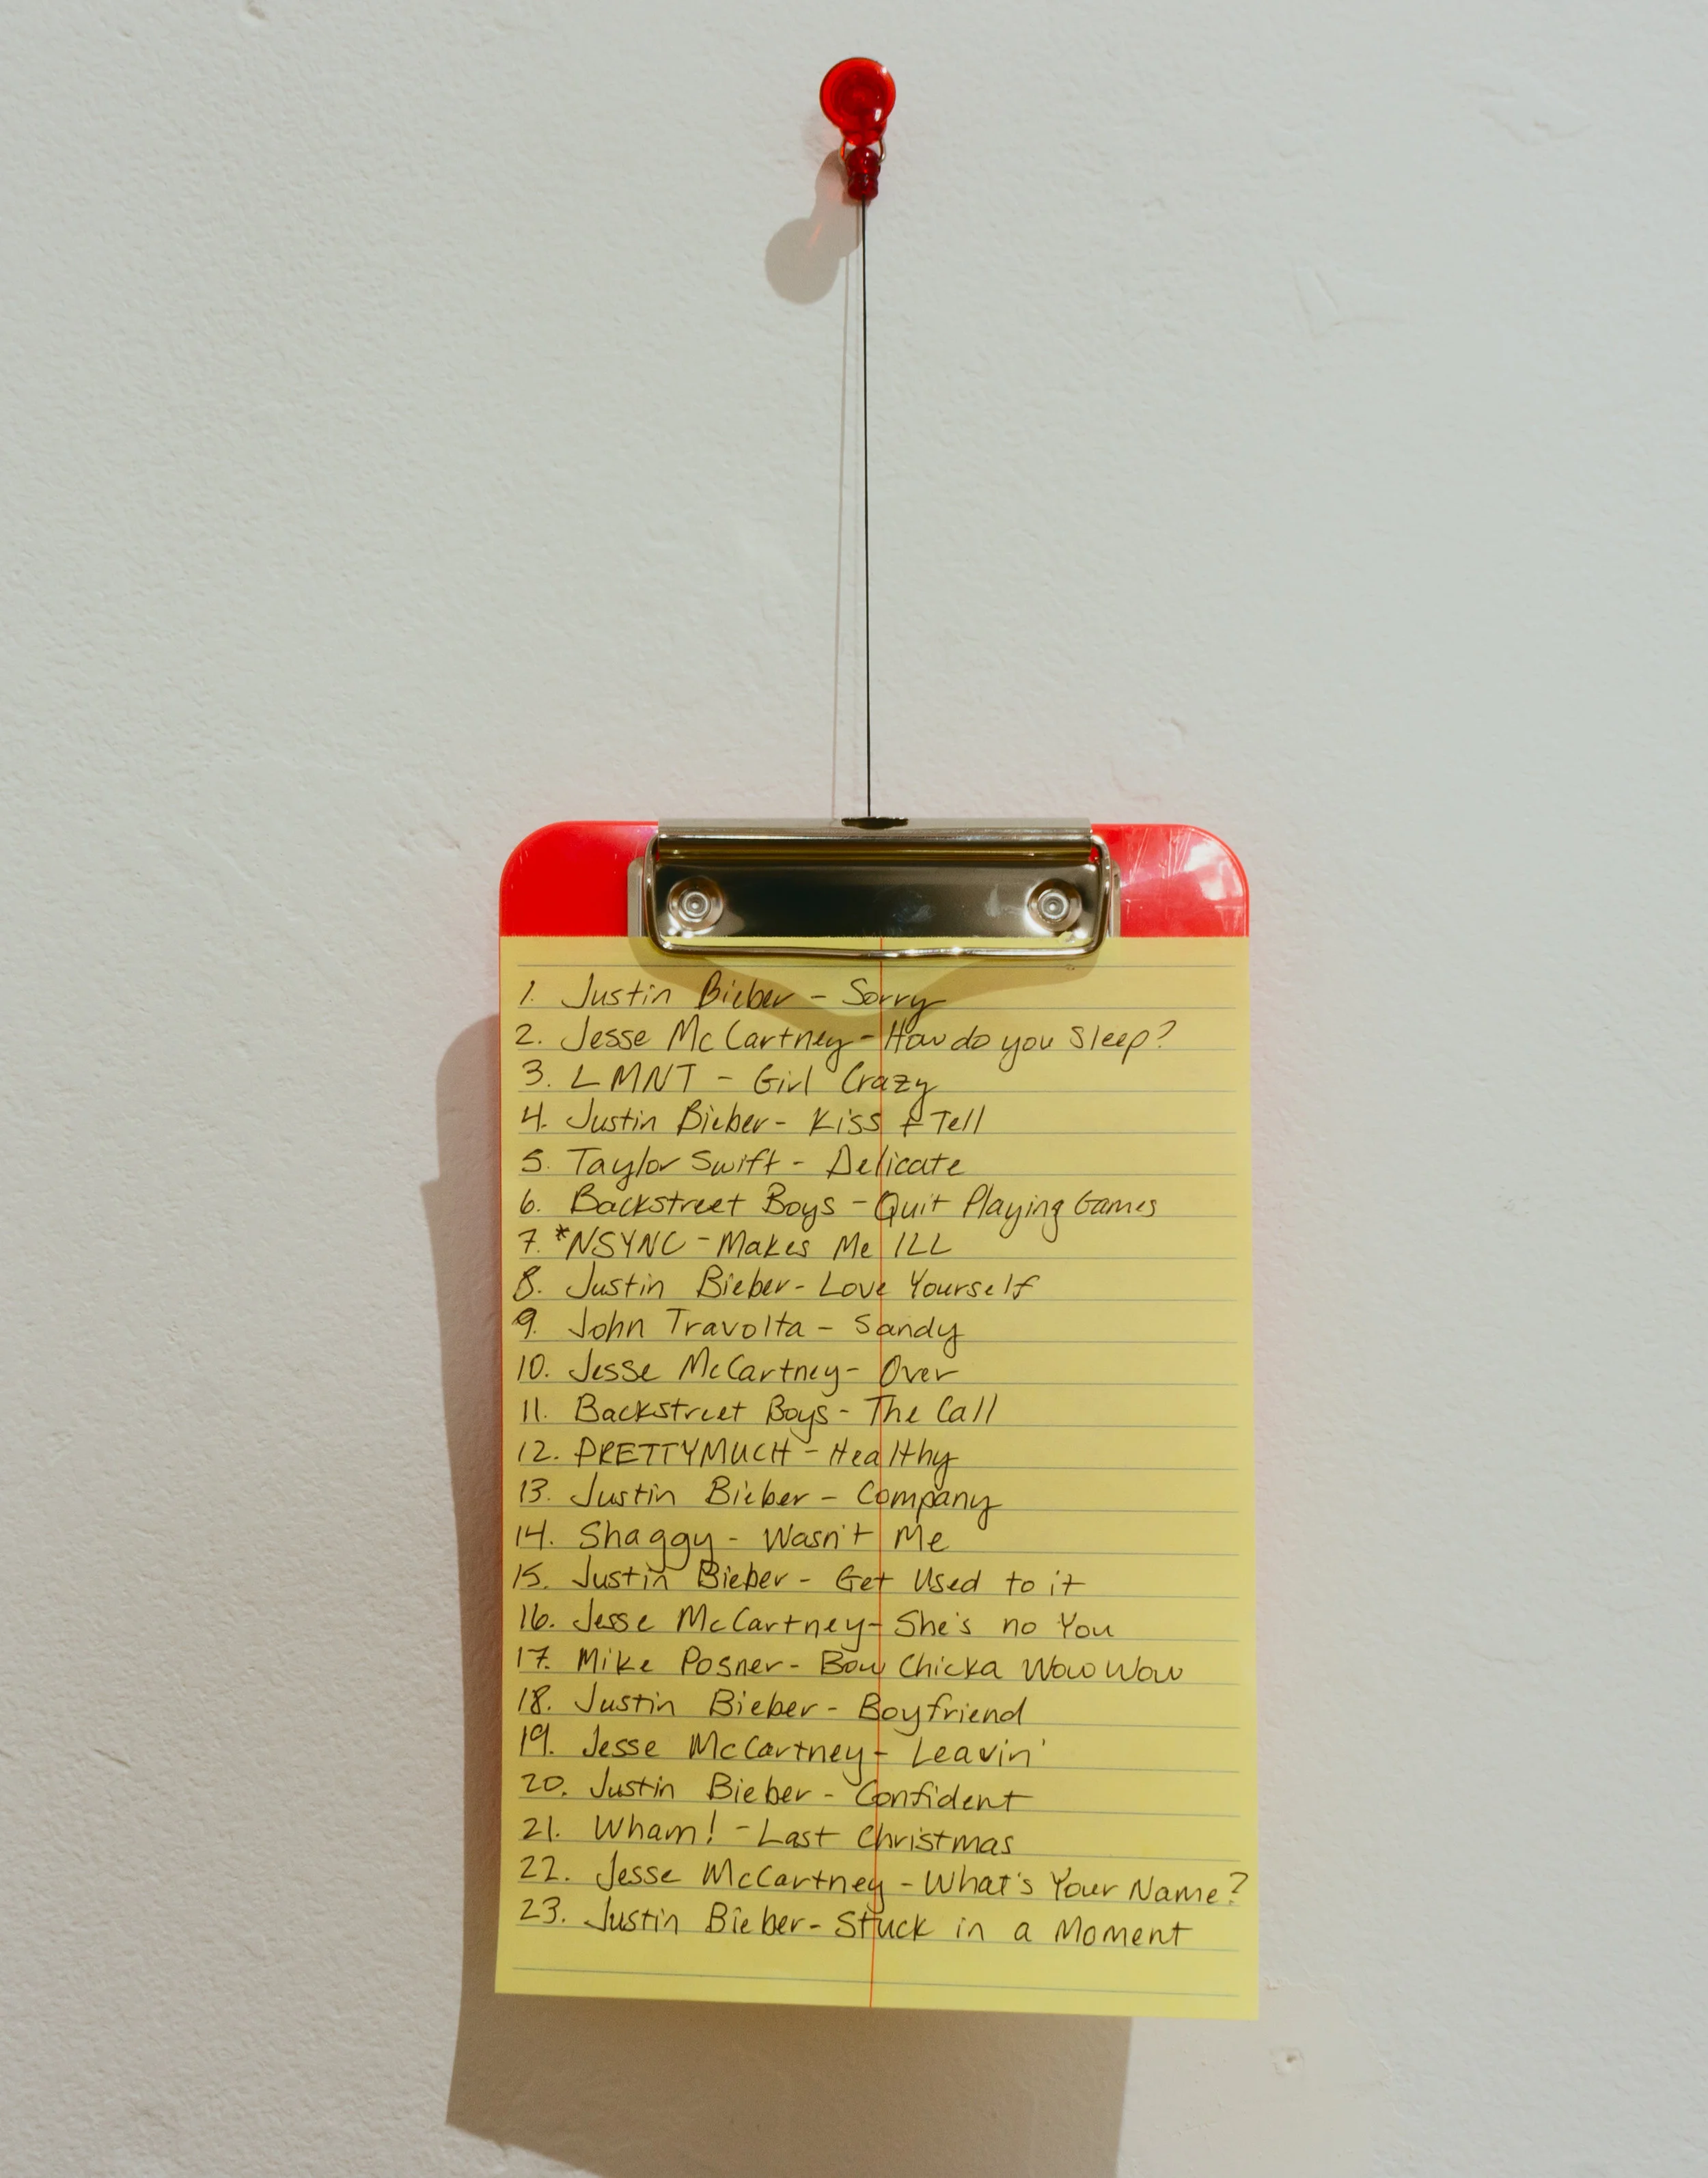 1. Justin Bieber - Sorry
2. Jesse McCartney - How do you Sleep?
3. LMNT - Girl Crazy
4. Justin Bieber - Kiss & Tell
5. Taylor Swift - Delicate
6. Backstreet Boys - Quit Playing Games
7. *NSYNC - Makes Me ILL
8. Justin Bieber - Love Yourself
9. John Travolta - Sandy
10. Jesse McCartney - Over
11. Backstreet Boys - The Call
12. PRETTYMUCH - Healthy
13. Justin Bieber - Company
14. Shaggy - Wasn't Me
15. Justin Bieber - Get Used to it
16. Jesse McCartney - She's no You
17. Mike Posner - Bow Chicka Wow Wow
18. Justin Bieber - Boyfriend
19. Jesse McCartney - Leavin'
20. Justin Bieber - Confident
21. Wham! - Last Christmas
22. Jesse McCartney - What's Your Name?
23. Justin Bieber - Stuck in a Moment